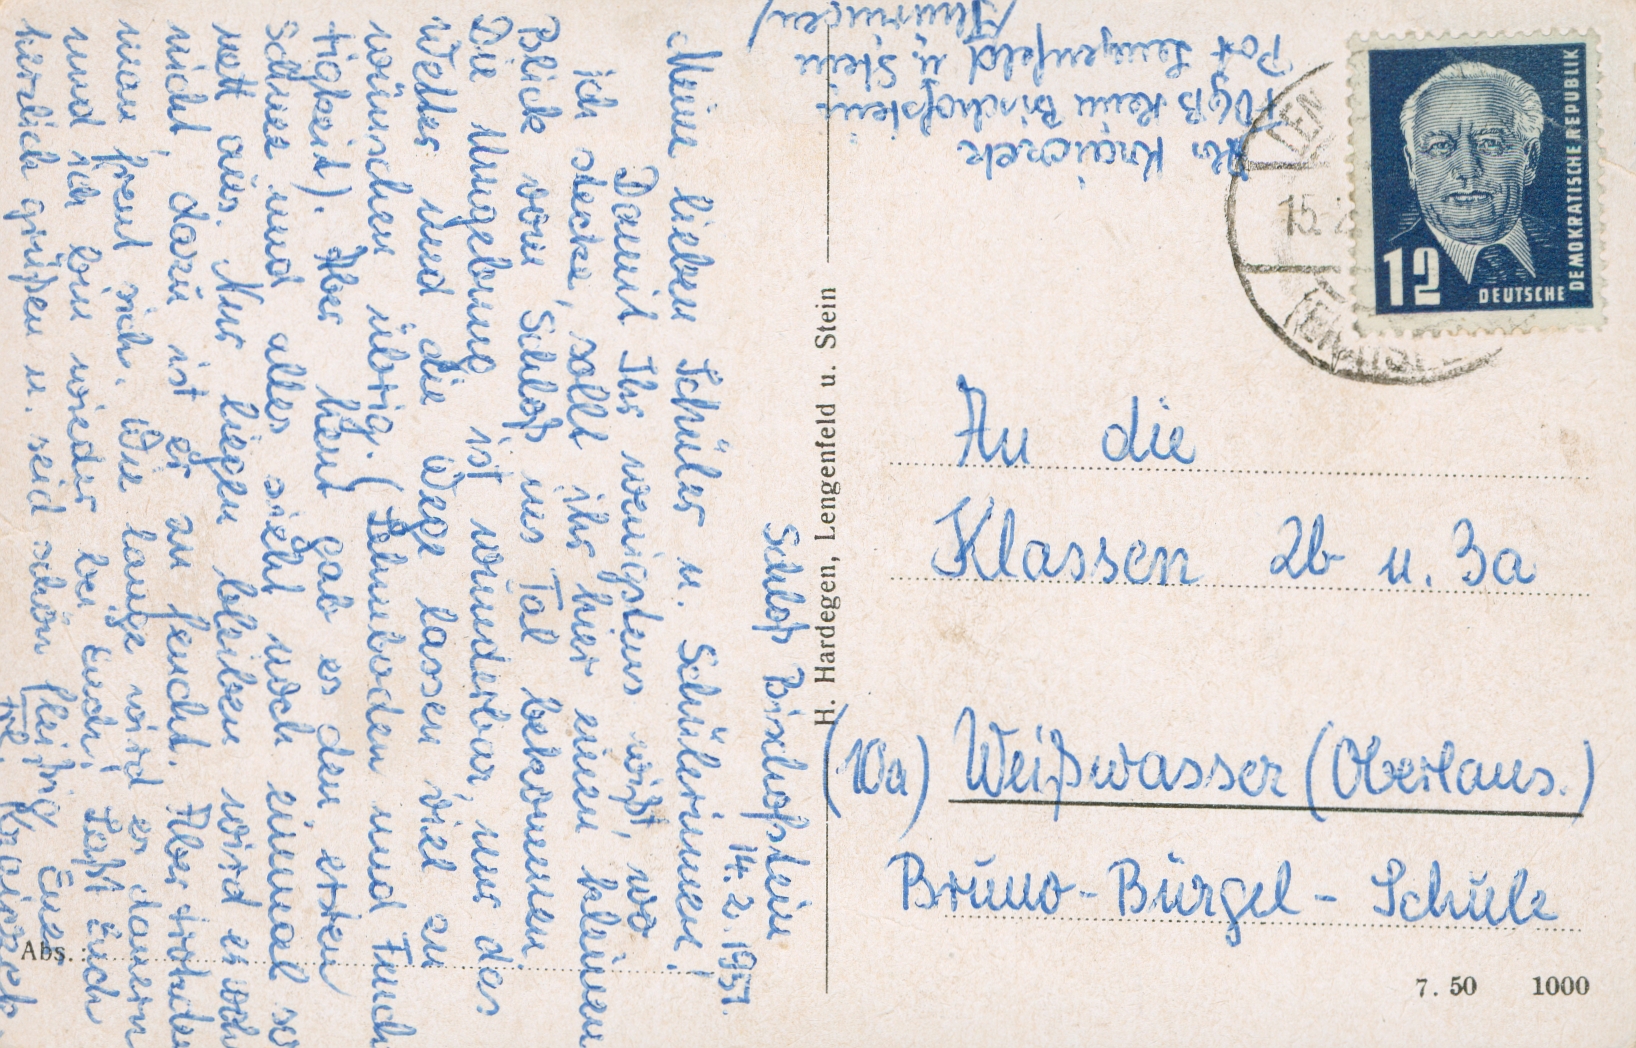 Schloß Bischofstein
14.2.1951.
Meine lieben Schüler u. Schülerinnen!
Damit Ihr wenigstens wißt, wo
ich stecke, sollt ihr hier einen kleinen
Blick vom Schloß ins Tal bekommen.
Die Umgebung ist wunderbar, nur das
Wetter und die Wege lassen viel zu
wünschen übrig. (Lehmboden und Feuch-
tigkeit). Aber heut gab es den ersten
Schnee und alles sieht noch einmal so
nett aus. Nur liegen bleiben wird er wohl
nicht, dazu ist er zu feucht. Aber trotzdem
man freut sich. Wie lange wird es dauern
und ich bin wieder bei Euch. Laßt Euch
herzlich grüßen u. seid schön fleißig Euer
Krajorek.
Abs.:
H. Hardegen, Lengenfeld u. Stein
Krajorek
FDGB Heim Bischofstein
Post Lengenfeld u. Stein
/Thüringen/
15. 2
12
DEUTSCHE
DEMOKRATISCHE REPUBLIK
An die
Klassen 2b u. 3a
(10a) Weißwasser (Oberlaus.)
Bruno-Bürgel-Schule
7. 50 1000